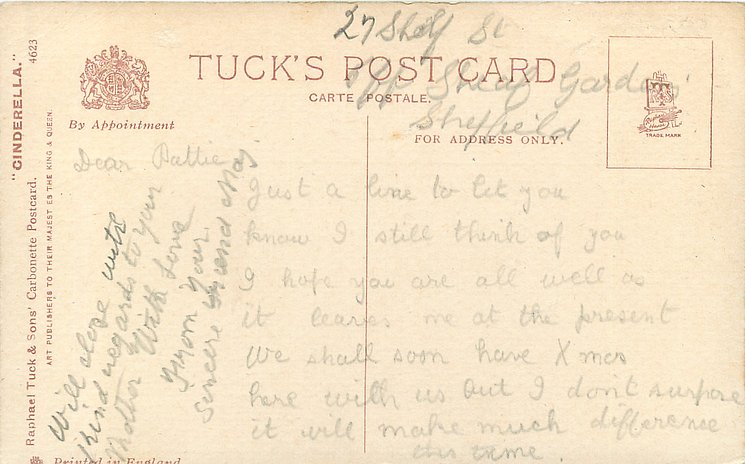 27 Shelf St
Opp Sheaf Gardens
Sheffield
TUCK'S POST CARD
CARTE POSTALE.
By Appointment
FOR ADDRESS ONLY.
TRADE MARK
"CINDERELLA."
4623
Raphael Tuck & Sons' Carbonette Postcard.
ART PUBLISHERS TO THEIR MAJESTIES THE KING & QUEEN.
Printed in England
Dear Pattie
Just a line to let you
know I still think of you
I hope you are all well as
it leaves me at the present
We shall soon have Xmas
here with us but I dont surpose
it will make much difference
this time.
Will close with
Kind regards to your
Mother With Love
From Your
Sincere Friend May